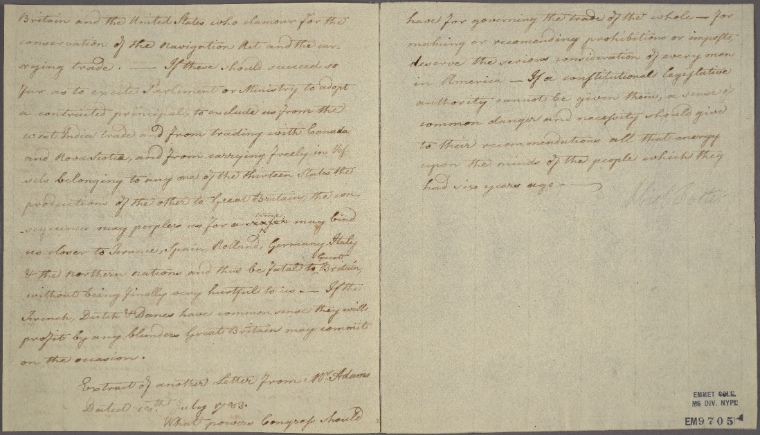 Britain and the United States who clamour for the
conservation of the Navigation Act and the car-
rying trade. — If these should succeed so
far as to excite Parlement or Ministry to adopt
a contracted principal, to exclude us from the
west India trade and from trading with Canada
and Nova Scotia, and from carrying freely in Ves
sels belonging to any one of the thirteen States the
productions of the other to Great Britain the con
sequences may perplex us for a time may bind
us closer to France, Spain Holland, Germany Italy
& the Northern nations and thus be fatal to Great Britain,
without being finally very hurtful to us — If the
French, Dutch & Danes have common sense they will
profit by any blunders Great Britain may commit
on the occasion.
Extract of another Letter from Mr. Adams
Dated July 1783.
What powers Congress should
have for governing the trade of the whole — for
making or recomending prohibitions or imposts,
deserve the serious consideration of every man
in America — If a constitutional legislative
authority cannot be given them, a sense of
common danger and necessity should give
to their recommendations all that energy
upon the minds of the people which they
had six years ago. —
EMMET COLL.
MS DIV. NYPL
EM9705